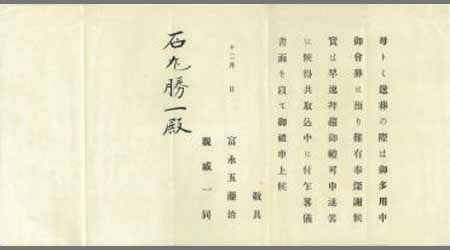 母トミ送葬の際は御多用中
御會葬に預り難有奉深謝候
實は早速拜趨御禮可申述筈
に候得共取込中に付乍畧儀
書面を以て御禮申上候
敬具
十二月 日
富永五藤治
親戚一同
石丸勝一殿